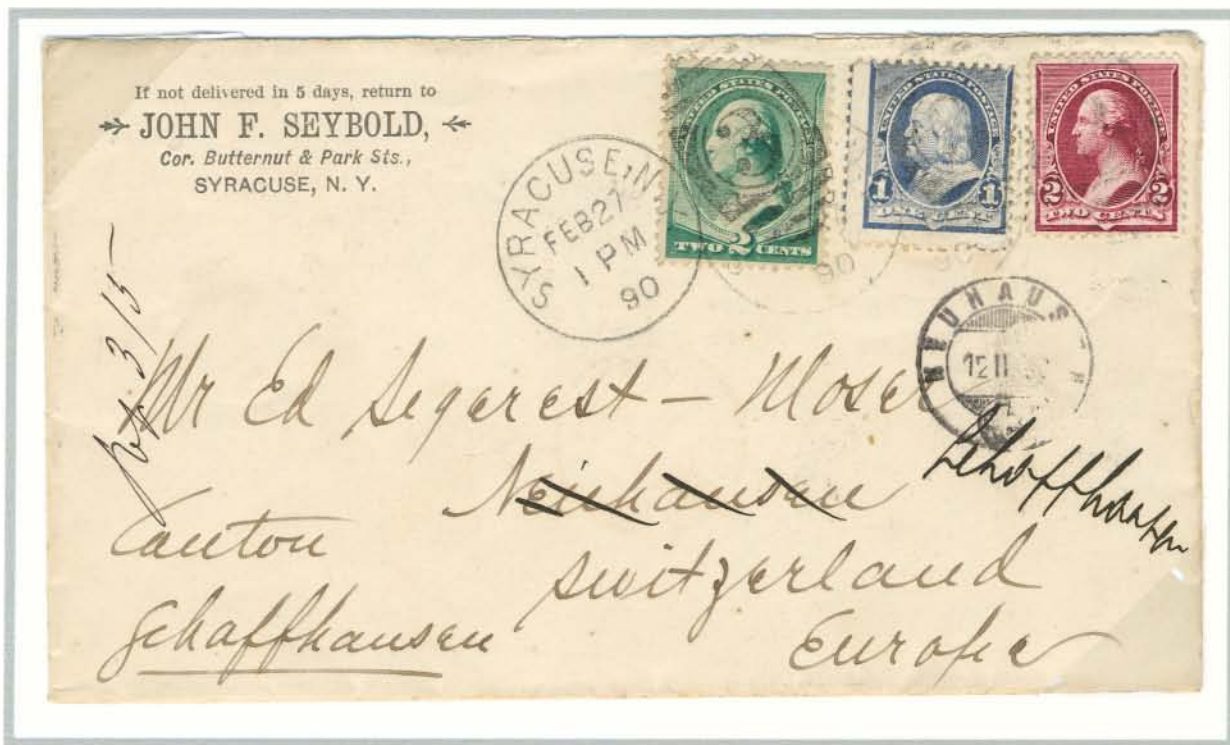 If not delivered in 5 days, return to
JOHN F. SEYBOLD,
Cor. Butternut & Park Sts.,
SYRACUSE, N. Y.
SYRACUSE, N.
FEB 27
1 PM
90
UNITED STATES POSTAGE
TWO 2 CENTS
90
UNITED STATES POSTAGE
1 1
ONE CENT
UNITED STATES POSTAGE
2 2
TWO CENTS
90
NEUHAUS
12 II
3/15
Mr Ed Segerest - Moser
Neuhausen
Schaffhausen
Canton
Switzerland
Schaffhausen
Europe